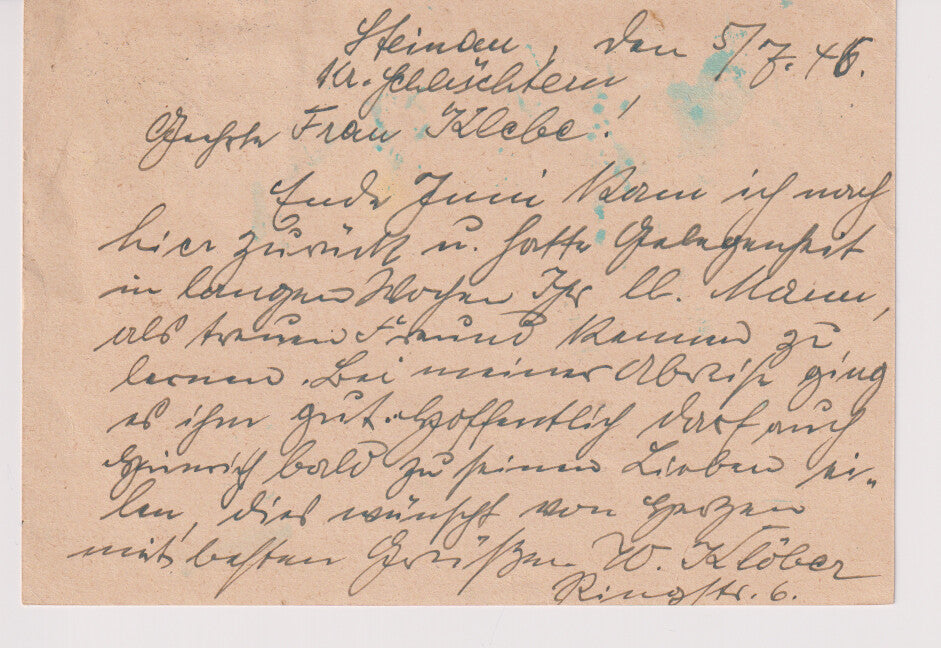 Steinau, den 5/7. 46.
Kr. Schlüchtern
Geehrte Frau Klebe!
Ende Juni kam ich nach
hier zurück u. hatte Gelegenheit
in langen Wochen Ihr lb. Mann,
als treuen Freund kennen zu
lernen. Bei meiner Abreise ging
es ihm gut. Hoffentlich darf auch
Heinrich bald zu seinen Lieben ei-
len, dies wünscht von Herzen
mit besten Grüßen W. Klöber
Ringstr. 6.